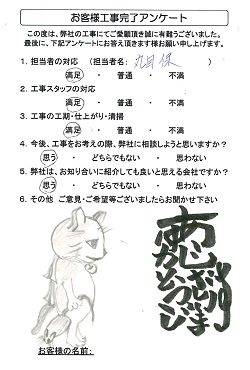 お客様工事完了アンケート
この度は、弊社の工事にてご愛顧頂き誠に有難うございました。
最後に、下記アンケートにお答え頂きます様お願い申し上げます。
1. 担当者の対応 (担当者名: 丸田 保 )
満足 ・ 普通 ・ 不満
2. 工事スタッフの対応
満足 ・ 普通 ・ 不満
3. 工事の工期・仕上がり・清掃
満足 ・ 普通 ・ 不満
4. 今後、工事をお考えの際、弊社に相談しようと思いますか?
思う ・ どちらでもない ・ 思わない
5. 弊社は、お知り合いに紹介しても良いと思える会社ですか?
思う ・ どちらでもない ・ 思わない
6. その他 ご意見・ご希望等ございましたらお聞かせ下さい
ありがとう
ございます
お客様の名前: